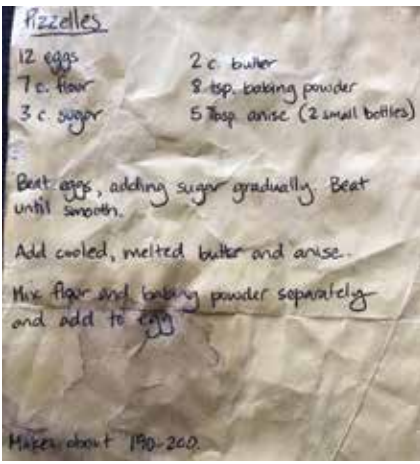 Pizzelles
12 eggs
2 c. butter
7 c. flour
8 tsp. baking powder
3 c. sugar
5 Tbsp. anise (2 small bottles)
Beat eggs, adding sugar gradually. Beat
until smooth.
Add cooled, melted butter and anise.
Mix flour and baking powder separately
and add to egg
Makes about 190-200.